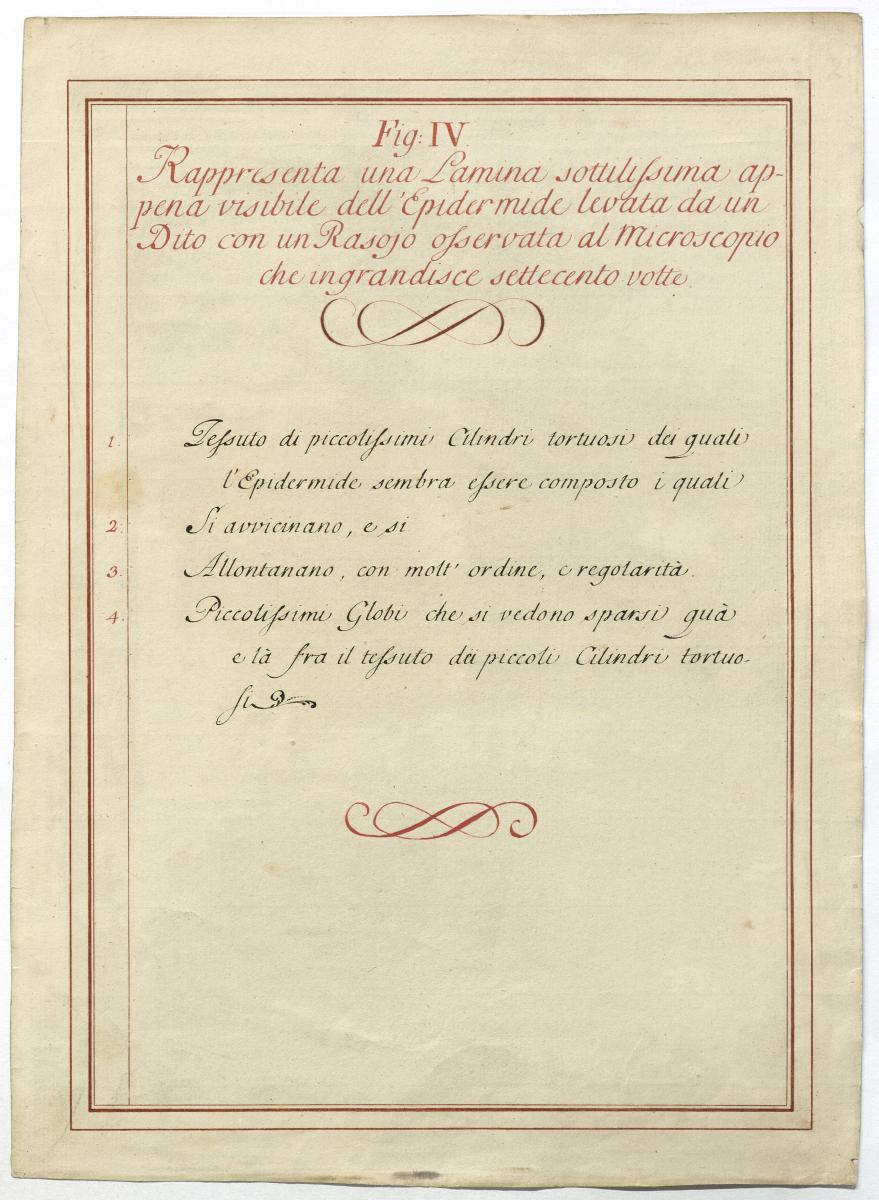 Fig: IV.
Rappresenta una Lamina sottilissima ap-
pena visibile dell'Epidermide levata da un
Dito con un Rasojo osservata al Microscopio
che ingrandisce settecento volte.
1. Tessuto di piccolissimi Cilindri tortuosi dei quali
l'Epidermide sembra essere composto i quali
2. Si avvicinano, e si
3. Allontanano, con molt' ordine, e regolarità.
4. Piccolissimi Globi che si vedono sparsi quà
e là fra il tessuto dei piccoli Cilindri tortuo-
si